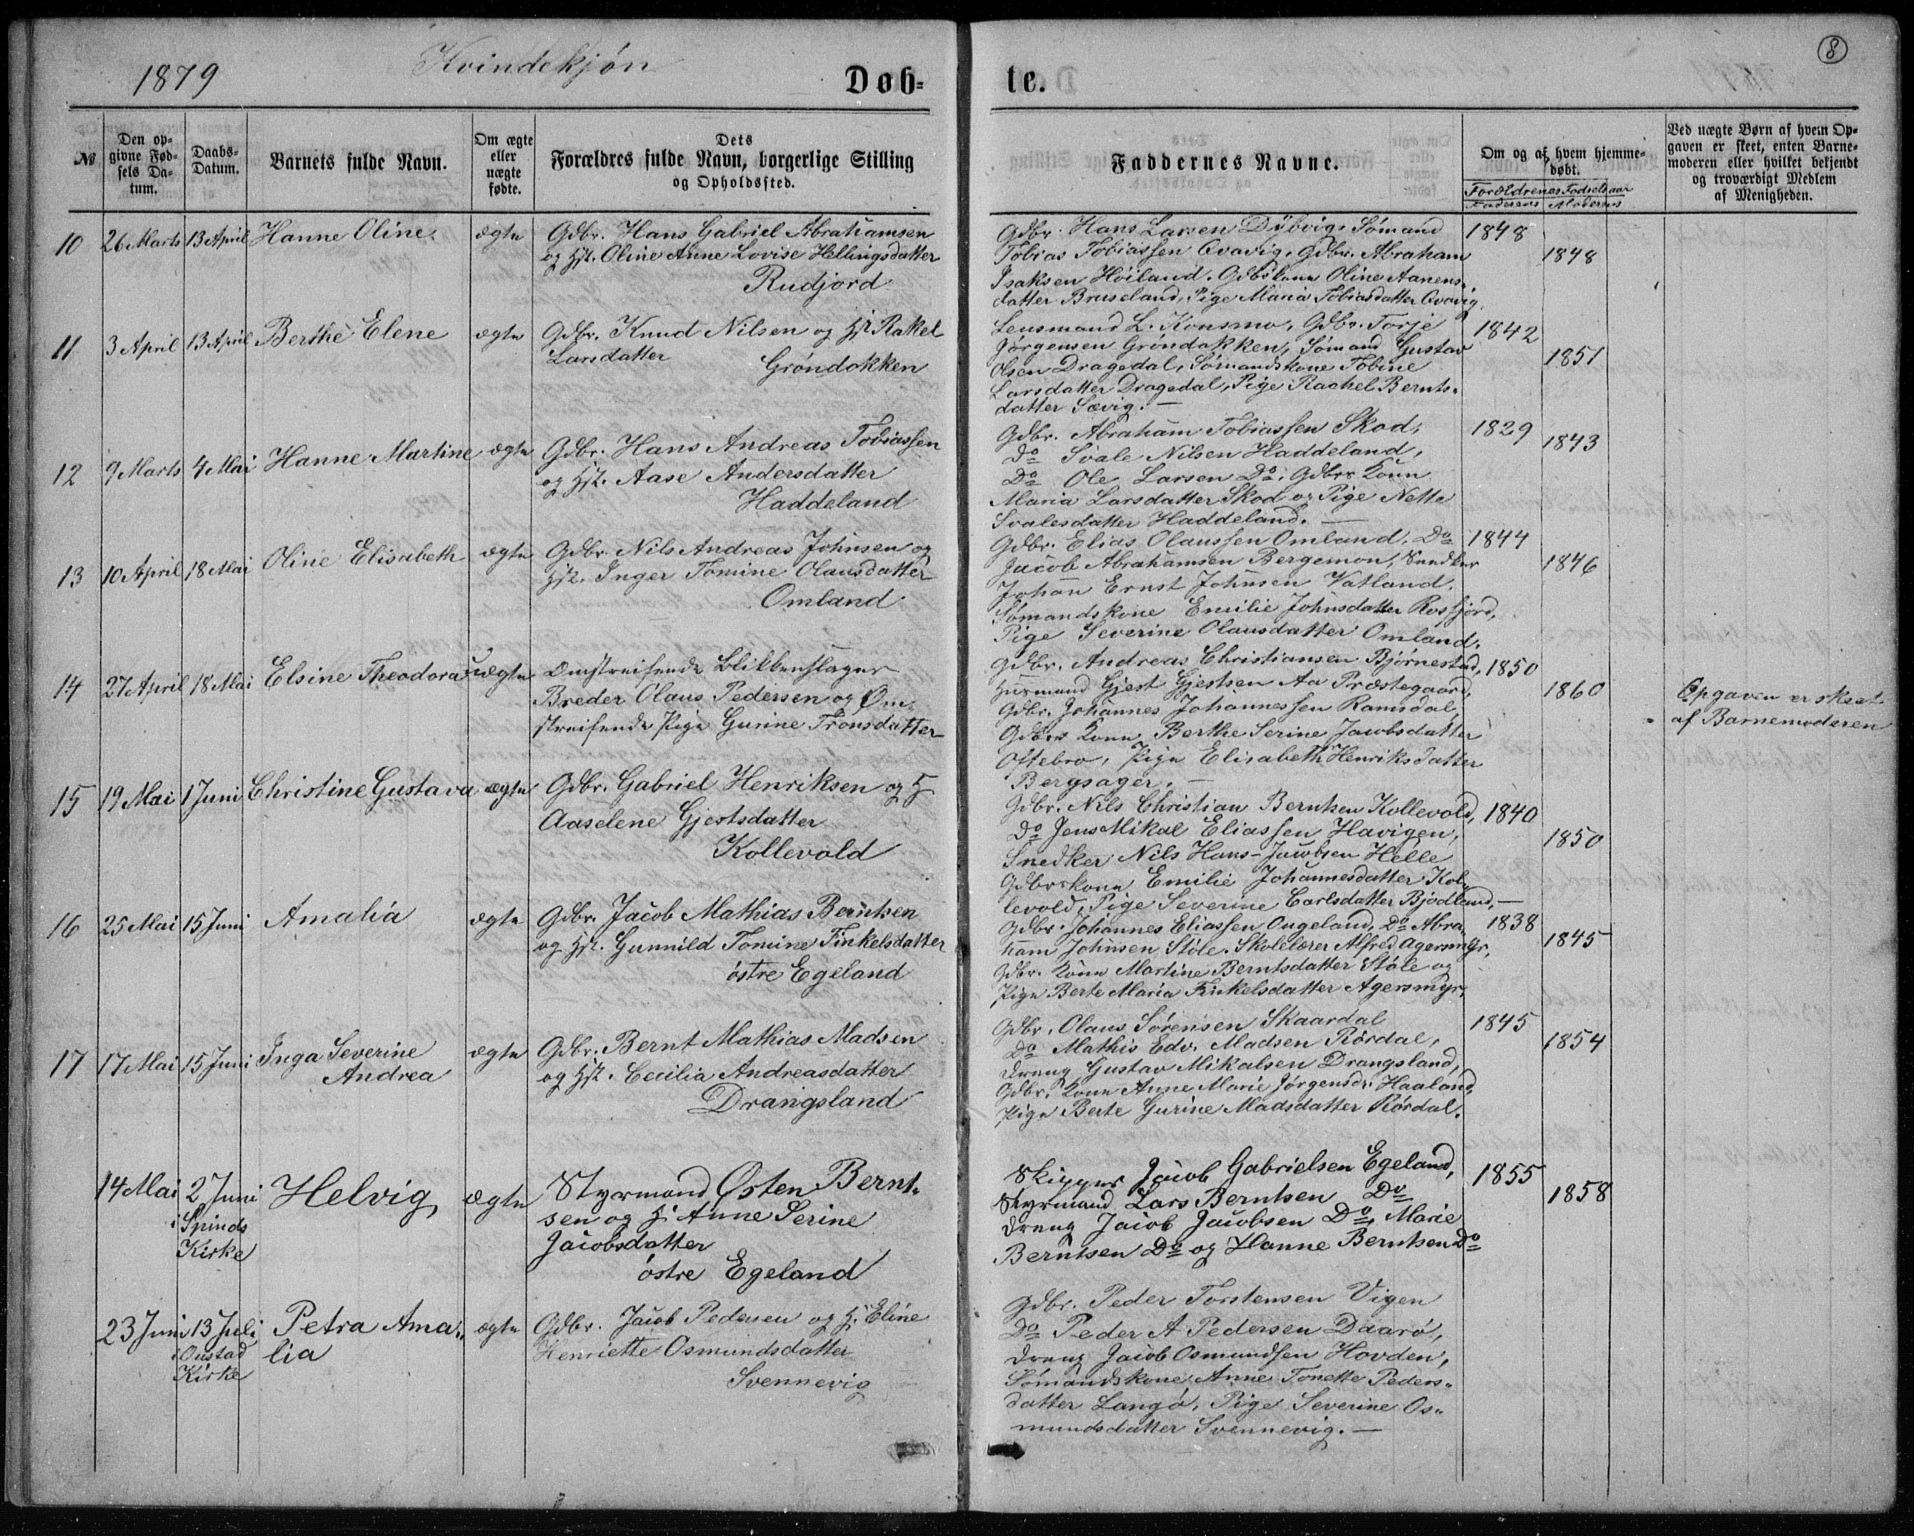 1879
Kvindekjøn
Døb-
te.
8
№
Den op-
givne Fød-
sels Da-
tum.
Daabs-
Datum.
Barnets fulde Navn.
Om ægte
eller
uægte
fødte.
Dets
Forældres fulde Navn, borgerlige Stilling
og Opholdssted.
Faddernes Navne.
Om og af hvem hjemme-
døbt.
Forældrenes Fødselsaar
Faderens Moderens
Ved uægte Børn af hvem Op-
gaven er skeet, enten Barne-
moderen eller hvilket bekjendt
og troværdigt Medlem
af Menigheden.
10 26 Marts 13 April Hanne Oline ægte
Gdbr. Hans Gabriel Abrahamsen
og Hst. Oline Anne Lovise Hellingsdatter
Rudjord
Gdbr. Hans Larsen Dybvig, Sømand
Tobias Tobiassen Qvavig, Gdbr. Abraham
Isaksen Høiland, Gdbskone Oline Aanens-
datter Bruseland, Pige Maria Tobiasdatter Qvavig
1848
1848
11 3 April 13 April Berthe Elene ægte
Gdbr. Knud Nilsen og H. Rakel
Larsdatter
Grøndokken
Lensmand L. Konsmo, Gdbr. Torje
Jørgensen Grøndokken, Sømand Gustav
Olsen Dragedal, Sømandskone Tobine
Larsdatter Dragedal, Pige Rachel Bernts-
datter Sævig. —
1842
1851
12 9 Marts 4 Mai Hanne Martine ægte
Gdbr. Hans Andreas Tobiassen
og Hst. Aase Andersdatter
Haddeland
Gdbr. Abraham Tobiassen Skod,
Do Svale Nilsen Haddeland,
Do Ole Larsen Do, Gdbrs Kone
Maria Larsdatter Skod og Pige Nette
Svalesdatter Haddeland. —
1829
1843
13 10 April 18 Mai Oline Elisabeth ægte
Gdbr. Nils Andreas Johnsen og
Hst. Inger Tomine Olausdatter
Omland
Gdbr. Elias Olaussen Omland, Do
Jacob Abrahamsen Bergemon, Snedker
Johan Ernst Johnsen Vatland,
Sømandskone Emilie Johnsdatter Rosfjord,
Pige Severine Olausdatter Omland.
1844
1846
14 27 April 18 Mai Elsine Theodora uægte
Omstreifende Blikkenslager
Breder Olaus Pedersen og Om-
streifende Pige Gurine Tronsdatter
Gdbr. Andreas Christiansen Bjørnestad,
Husmand Gjest Gjestsen Aa Præstegaard,
Gdbr. Johannes Johannessen Ramsdal,
Gdbrs Kone Berthe Serine Jacobsdatter
Oftebro, Pige Elisabeth Henriksdatter
Bergsager. —
1850
1860
Opgaven er skeet
af Barnemoderen
15 19 Mai 1 Juni Christine Gustava ægte
Gdbr. Gabriel Henriksen og H
Aaselene Gjestsdatter
Kollevold
Gdbr. Nils Christian Berntsen Kollevold,
Do Jens Mikal Eliassen Havigen,
Snedker Nils Hans-Jacobsen Helle
Gdbrskone Emilie Johannesdatter Kol-
levold, Pige Severine Carlsdatter Bjodland, —
1840
1850
16 25 Mai 15 Juni Amalia ægte
Gdbr. Jacob Mathias Berntsen
og Hst. Gunnild Tomine Finkelsdatter
østre Egeland
Gdbr. Johannes Eliassen Ougeland, Do Abra-
ham Johnsen Støle, Skolelærer Alfred Agersmyr,
Gdbr. Kone Martine Berntsdatter Støle og
Pige Berte Maria Finkelsdatter Agersmyr.
1838
1845
17 17 Mai 15 Juni Inga Severine
Andrea
ægte
Gdbr. Bernt Mathias Madsen
og Hst. Cecilia Andreasdatter
Drangsland
Gdbr. Olaus Sørensen Skaardal
Do Mathis Edv. Madsen Rørdal,
Dreng Gustav Mikalsen Drangsland,
Gdbr. Kone Anne Marie Jørgensdr. Haaland,
Pige Berte Gurine Madsdatter Rørdal.
1845
1854
14 Mai 2 Juni
i Spinds
Kirke
Helvig ægte
Styrmand Østen Bernt-
sen og H. Anne Serine
Jacobsdatter
østre Egeland
Skipper Jacob Gabrielsen Egeland,
Styrmand Lars Berntsen Do
Dreng Jacob Jacobsen Do, Marie
Berntsen Do og Hanne Berntsen Do
1855
1858
23 Juni 13 Juli
i Oustad
Kirke
Petra Ama-
lia
ægte
Gdbr. Jacob Pedersen og H. Eline
Henriette Osmundsdatter
Svennevig
Gdbr. Peder Torstensen Vigen
Do Peder A Pedersen Daarø,
Dreng Jacob Osmundsen Hovden,
Sømandskone Anne Tonette Peders-
datter Langø, Pige Severine Os-
mundsdatter Svennevig. —